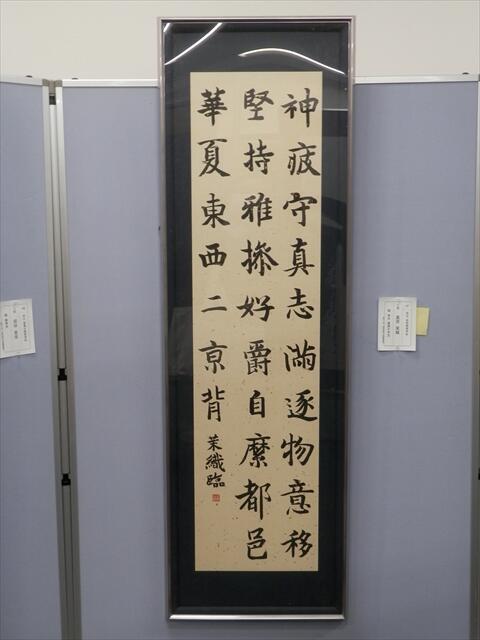 神疲守真志滿逐物意移
堅持雅操好爵自縻都邑
華夏東西二京背
茉織臨